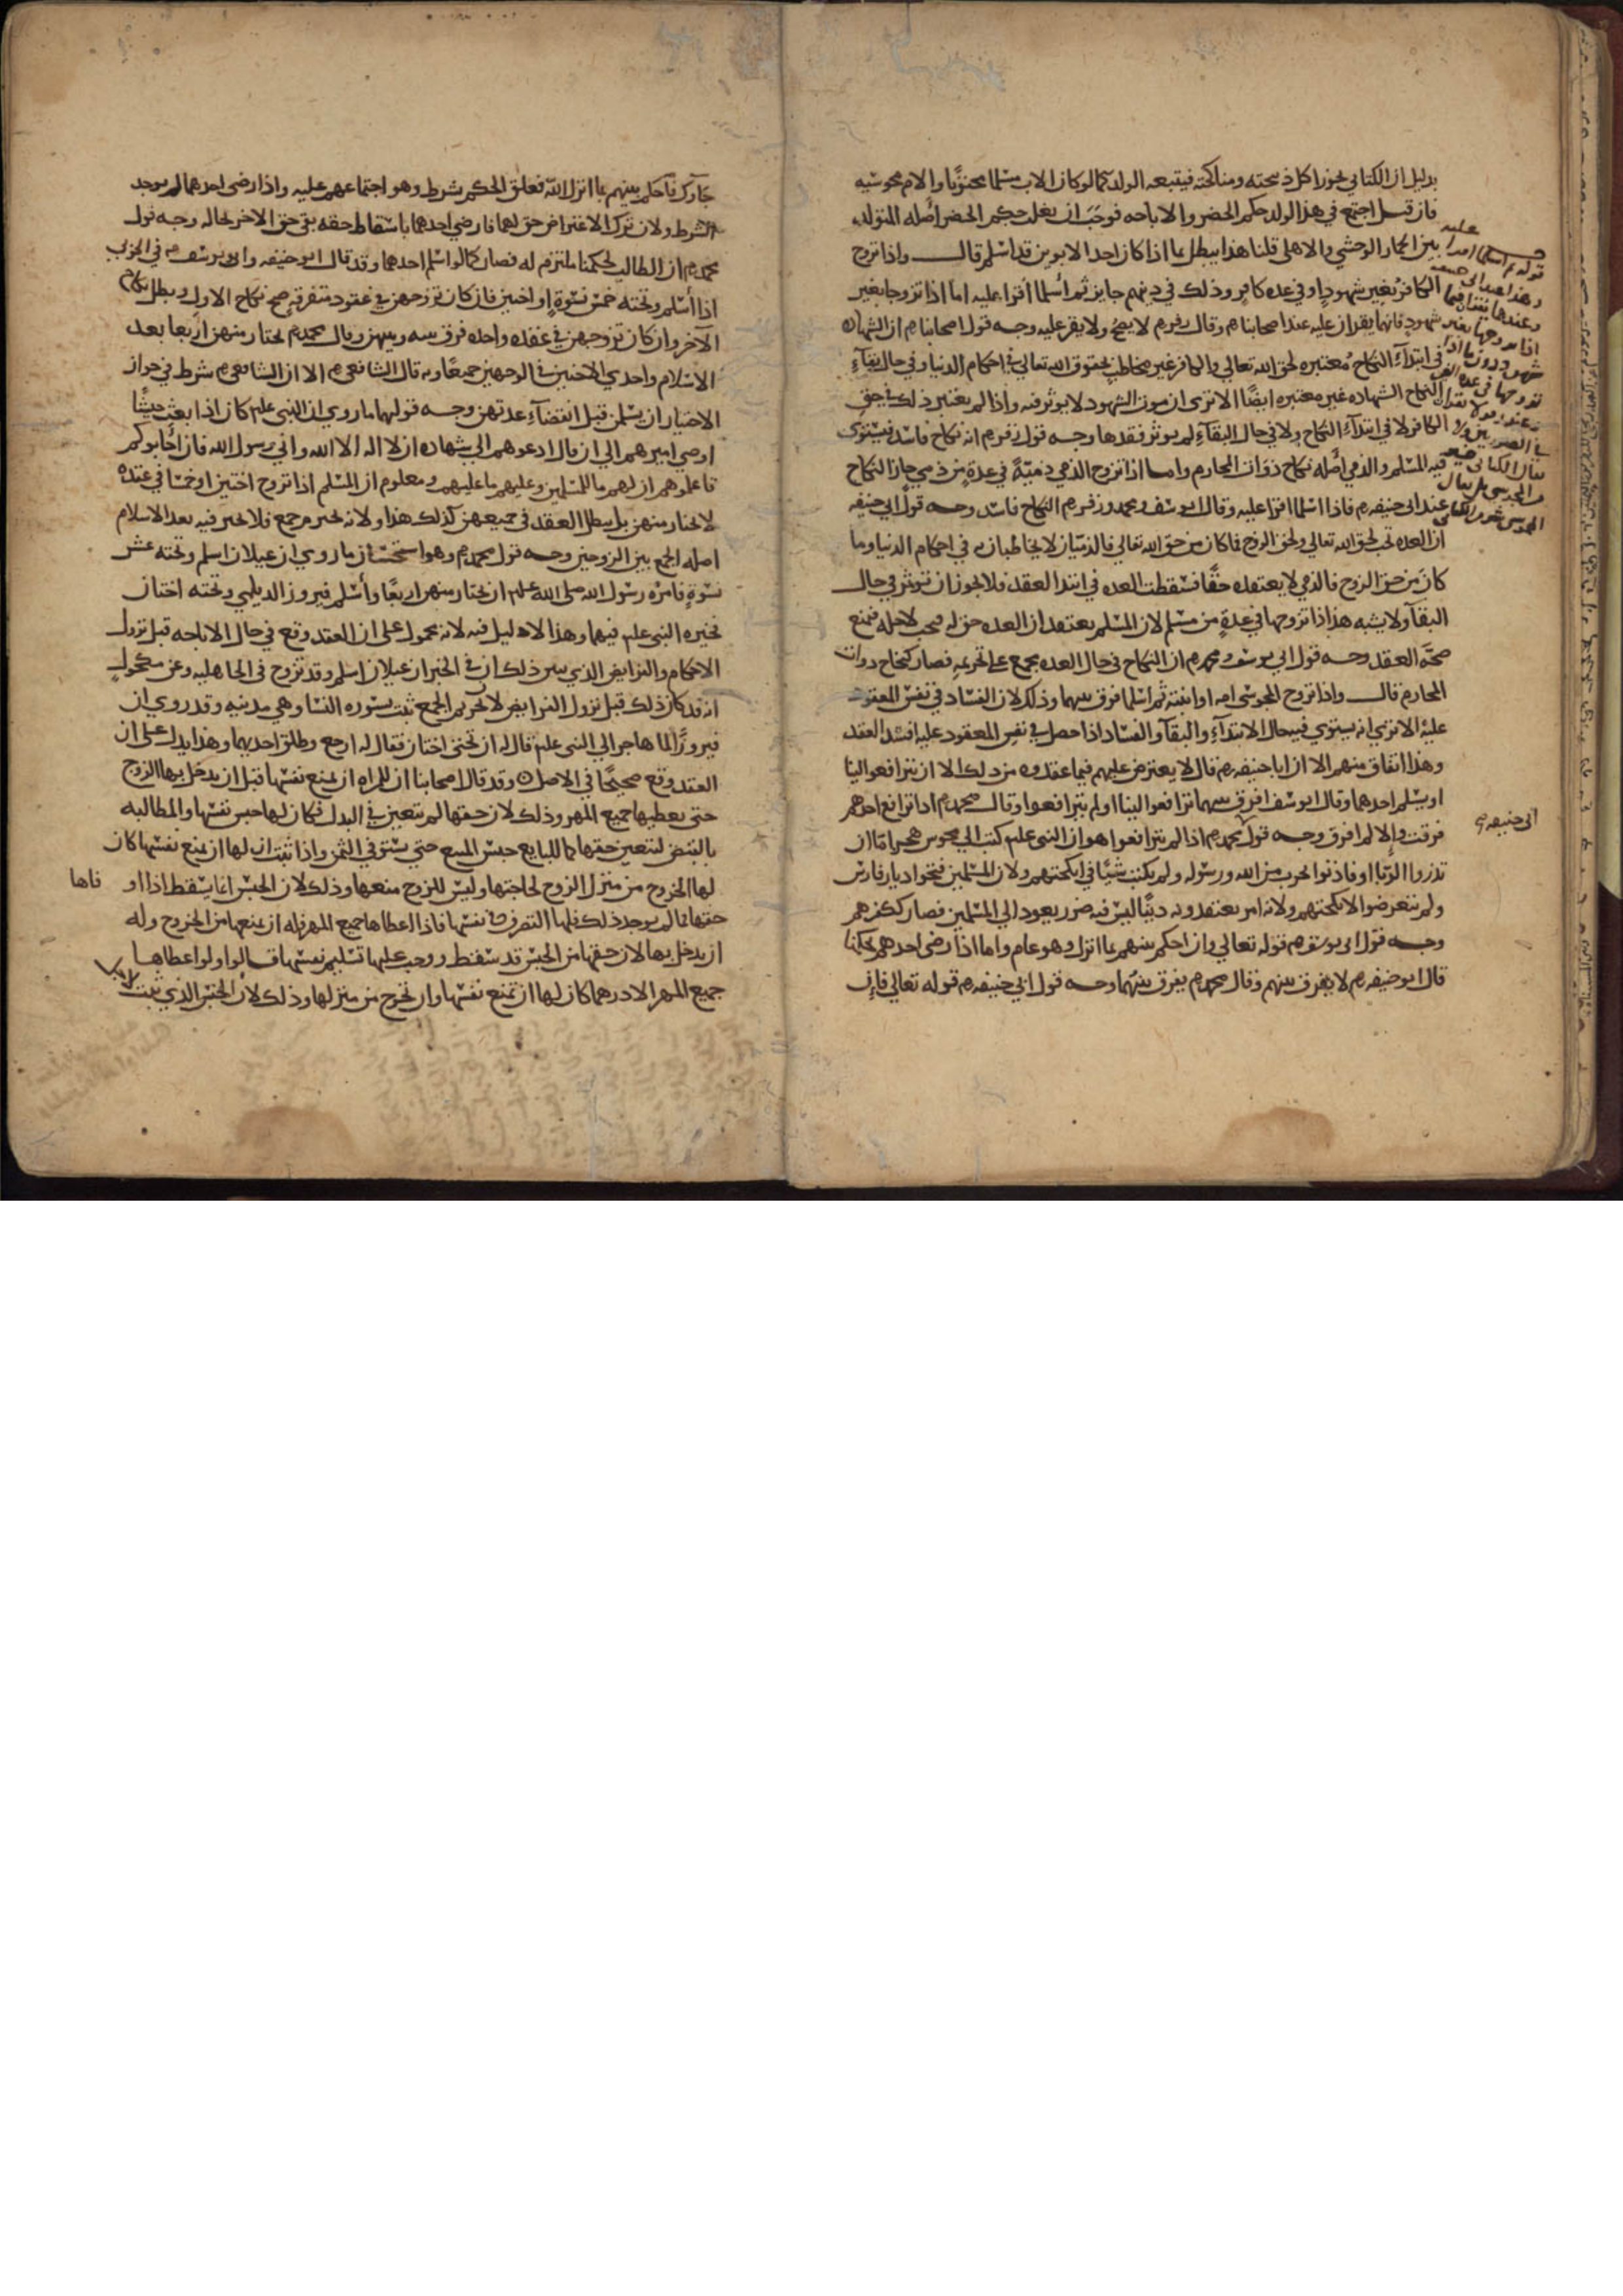 بدليل ان الكتابي يجوز اكل ذبيحته ومناكحته فيتبعه الولد كما لو كان الاب مسلما مجنونا والام مجوسيه
فان قيل اجتمع في هذا الولد حكم الحضر والاباحه فوجب ان يغلب حكم الحضر اصله المتولد
بين الحمار الوحشي والاهلي قلنا هذا يبطل بما اذا كان احد الابوين قد اسلم قال واذا تزوج
الكافر بغير شهود او في عده كافر وذلك في دينهم جايز ثم اسلما اقرا عليه اما اذا تزوجا بغير
شهود فانهما يقران عليه عند اصحابنا رم وقال زفر رم لا يصح ولا يقر عليه وجه قول اصحابنا رم ان الشهاده
في ابتداء النكاح معتبره لحق الله تعالي والكافر غير مخاطب بحقوق الله تعالي في احكام الدنيا وفي حال بقاء
النكاح الشهاده غير معتبره ايضا الا تري ان موت الشهود لا يوثر فيه واذا لم يعتبر ذلك في حق
الكافر لا في ابتداء النكاح ولا في حال البقاء لم يوثر فقدها وجه قول زفر رم انه نكاح فاسد فيستوي
فيه المسلم والذمي اصله نكاح ذوات المحارم واما اذا تزوج الذمي ذمية في عدة من ذمي جاز النكاح
عند ابي حنيفه رم فاذا اسلما اقرا عليه وقال ابو يوسف ومحمد وزفر رم النكاح فاسد وجه قول ابي حنيفه
ان العده تجب لحق الله تعالي ولحق الزوج فما كان من حق الله تعالي فالذميان لا يخاطبان في احكام الدنيا وما
كان من حق الزوج فالذمي لا يعتقده حقا فسقطت العده في ابتدا العقد فلا يجوز ان توثر في حال
البقا ولا يشبه هذا اذا تزوجها في عدة من مسلم لان المسلم يعتقد ان العده حق له وتجب لاجله فمنع
صحة العقد وجه قول ابي يوسف ومحمد رم ان النكاح في حال العده مجمع علي تحريمه فصار كنكاح ذوات
المحارم قال واذا تزوج المجوسي امه او ابنته ثم اسلما فرق بينهما وذلك لان الفساد في نفس المعقود
عليه الا تري انه يستوي فيه حال الابتداء والبقا والفساد اذا حصل في نفس المعقود عليه افسد العقد
وهذا اتفاق منهم الا ان ابا حنيفه رم قال لا يعترض عليهم فيما عقدوه من ذلك الا ان يترافعوا الينا
او يسلم احدهما وقال ابو يوسف افرق بينهما ترافعوا الينا او لم يترافعوا وقال محمد رم اذا ترافع احدهم
فرقت والا لم افرق وجه قول محمد رم اذا لم يترافعوا هو ان النبي علم كتب الي مجوس هجر اما ان
تذروا الربا او فاذنوا بحرب من الله ورسوله ولم يكتب شيا في انكحتهم ولان المسلمين فتحوا ديار فارس
ولم يتعرضوا لانكحتهم ولانه امر يعتقدونه دينا ليس فيه ضرر يعود الي المسلمين فصار ككفرهم
وجه قول ابي يوسف رم قوله تعالي وان احكم بينهم بما انزل وهو عام واما اذا رضي احدهم بحكمنا
قال ابو حنيفه رم لا يفرق بينهم وقال محمد رم يفرق بينهما وجه قول ابي حنيفه رم قوله تعالي فان
ابي حنيفه رم
جاوك فاحكم بينهم بما انزل الله فعلق الحكم بشرط وهو اجتماعهم عليه واذا رضي احدهما لم يوجد
الشرط ولان ترك الاعتراض حق لهما فاذا رضي احدهما باسقاط حقه بقي حق الاخر بحاله وجه قول
محمد رم ان الطالب لحكمنا ملتزم له فصار كما لو اسلم احدهما وقد قال ابو حنيفه وابو يوسف رم في الحربي
اذا اسلم وتحته خمس نسوة او اختين فان كان تزوجهن في عقود متفرقه صح نكاح الاول وبطل نكاح
الاخر وان كان تزوجهن في عقده واحده فرق بينه وبينهن وقال محمد رم يختار منهن اربعا بعد
الاسلام واحدي الاختين في الوجهين جميعا وبه قال الشافعي رم الا ان الشافعي رم شرط في جواز
الاختيار ان يسلمن قبل انقضاء عدتهن وجه قولهما ما روي ان النبي علم كان اذا بعث جيشا
اوصي اميرهم الي ان قال ادعوهم الي شهادة ان لا اله الا الله واني رسول الله فان اجابوكم
فاعلموهم ان لهم ما للمسلمين وعليهم ما عليهم ومعلوم ان المسلم اذا تزوج اختين او خمسا في عقده
لا يختار منهن بل يبطل العقد في جميعهن كذلك هذا ولانه تحريم جمع فلا يخير فيه بعد الاسلام
اصله الجمع بين الزوجين وجه قول محمد رم وهو استحسان ما روي ان غيلان اسلم وتحته عشر
نسوة فامره رسول الله صلي الله علم ان يختار منهن اربعا واسلم فيروز الديلمي وتحته اختان
فخيره النبي علم فيهما وهذا لا دليل فيه لانه محمول علي ان العقد وقع في حال الاباحه قبل نزول
الاحكام والفرايض الذي يبين ذلك ان في الخبر ان غيلان اسلم وقد تزوج في الجاهليه وعن مكحول
انه قد كان ذلك قبل نزول الفرايض لان تحريم الجمع ثبت بسوره النسا وهي مدنيه وقد روي ان
فيروزا لما هاجر الي النبي علم قال له ان تحتي اختان فقال له ارجع وطلق احديهما وهذا يدل علي ان
العقد وقع صحيحا في الاصل وقد قال اصحابنا ان للمراه ان تمنع نفسها قبل ان يدخل بها الزوج
حتي يعطيها جميع المهر وذلك لان حقها لم يتعين في البدل فكان لها حبس نفسها والمطالبه
بالقبض لتعين حقها كما للبايع حبس المبيع حتي يستوفي الثمن واذا ثبت ان لها ان تمنع نفسها كان
لها الخروج من منزل الزوج لحاجتها وليس للزوج منعها وذلك لان الحبس انما يسقط اذا او
فاها
حقها فما لم يوجد ذلك فلها التصرف في نفسها فاذا اعطاها جميع المهر فله ان يمنعها من الخروج وله
ان يدخل بها لان حقها من الحبس قد سقط ووجب عليها تسليم نفسها قالوا ولو اعطاها
جميع المهر الا درهما كان لها ان تمنع نفسها وان تخرج من منزلها وذلك لان الحبس الذي ثبت